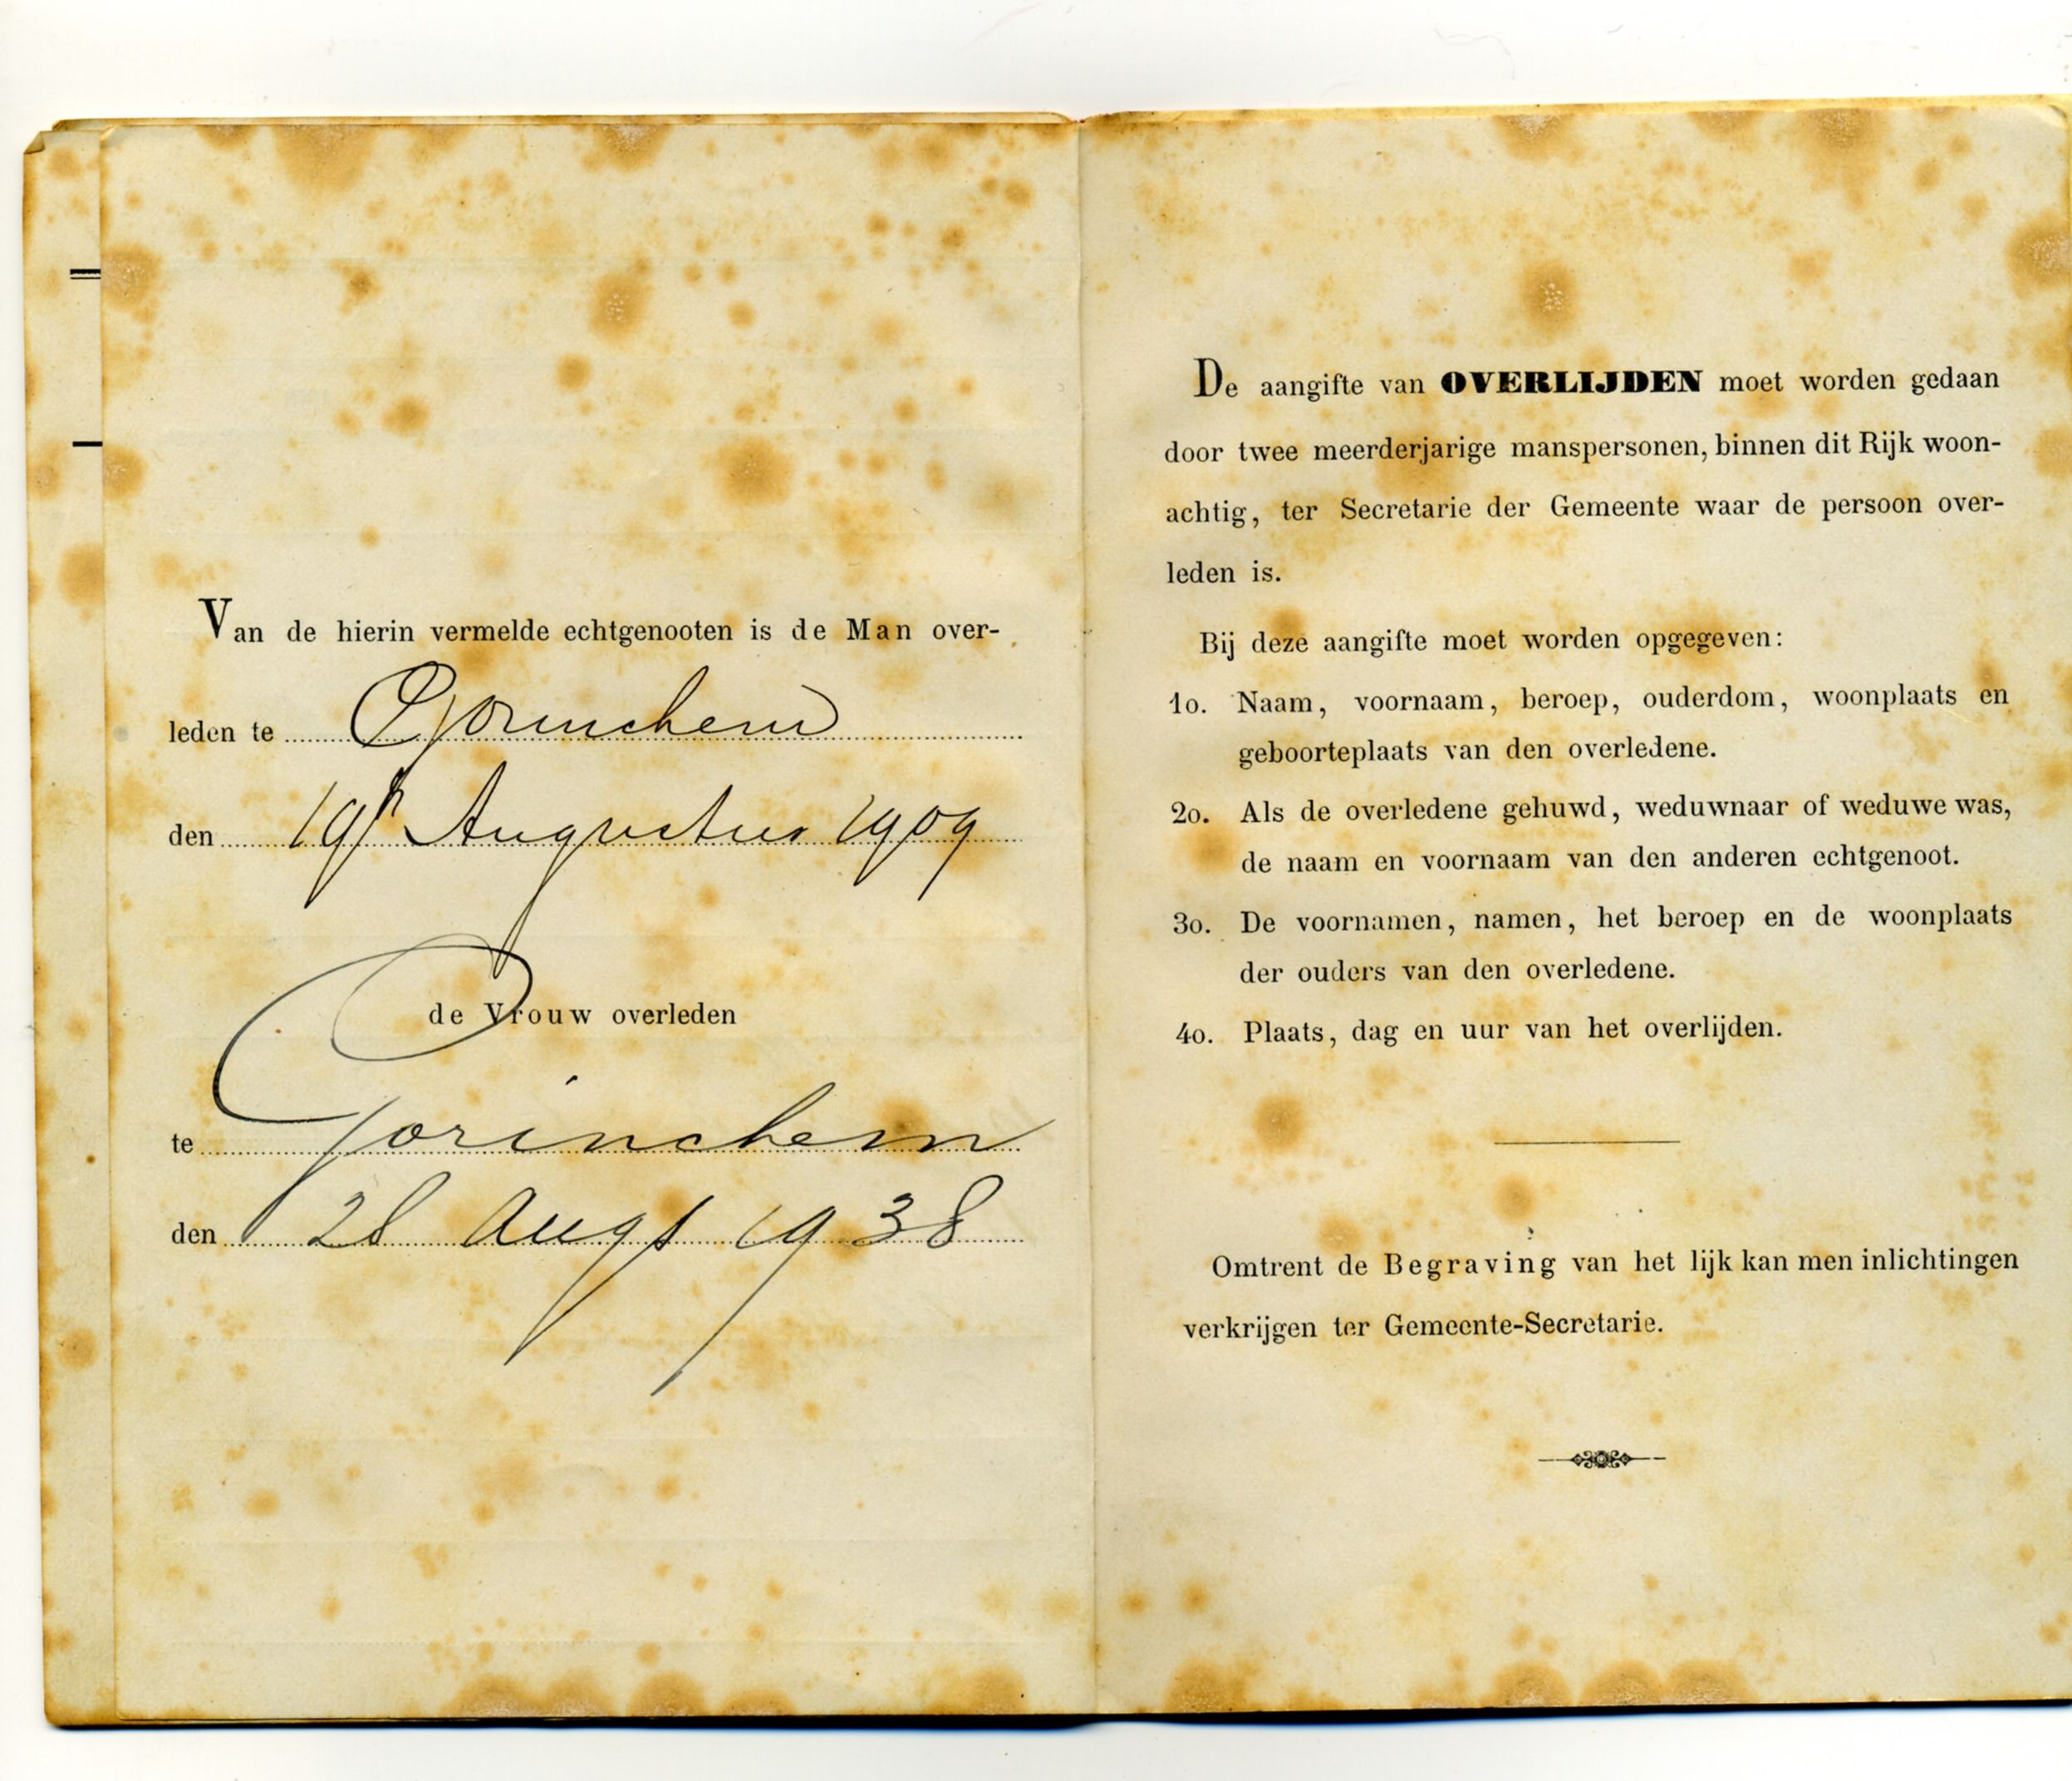 Van de hierin vermelde echtgenooten is de Man over-
leden te Gorinchem
den 19n Augustus 1909
de Vrouw overleden
te Gorinchem
den 28 Augs 1938
De aangifte van OVERLIJDEN moet worden gedaan
door twee meerderjarige manspersonen, binnen dit Rijk woon-
achtig, ter Secretarie der Gemeente waar de persoon over-
leden is.
Bij deze aangifte moet worden opgegeven:
1o. Naam, voornaam, beroep, ouderdom, woonplaats en
geboorteplaats van den overledene.
2o. Als de overledene gehuwd, weduwnaar of weduwe was,
de naam en voornaam van den anderen echtgenoot.
3o. De voornamen, namen, het beroep en de woonplaats
der ouders van den overledene.
4o. Plaats, dag en uur van het overlijden.
Omtrent de Begraving van het lijk kan men inlichtingen
verkrijgen ter Gemeente-Secretarie.